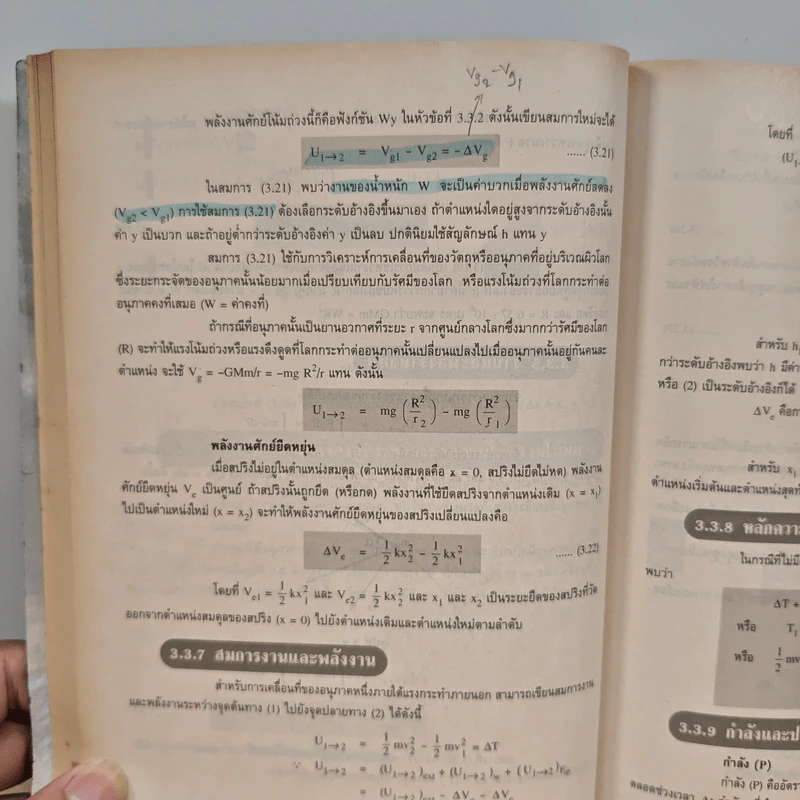 Vg2 - Vg1
พลังงานศักย์โน้มถ่วงนี้ก็คือฟังก์ชัน Wy ในหัวข้อที่ 3.3.2 ดังนั้นเขียนสมการใหม่จะได้
U1→2 = Vg1 − Vg2 = −ΔVg ...... (3.21)
ในสมการ (3.21) พบว่างานของน้ำหนัก W จะเป็นค่าบวกเมื่อพลังงานศักย์ลดลง
(Vg2 < Vg1) การใช้สมการ (3.21) ต้องเลือกระดับอ้างอิงขึ้นมาเอง ถ้าตำแหน่งใดอยู่สูงจากระดับอ้างอิงนั้น
ค่า y เป็นบวก และถ้าอยู่ต่ำกว่าระดับอ้างอิงค่า y เป็นลบ ปกตินิยมใช้สัญลักษณ์ h แทน y
สมการ (3.21) ใช้กับการวิเคราะห์การเคลื่อนที่ของวัตถุหรืออนุภาคที่อยู่บริเวณผิวโลก
ซึ่งระยะกระจัดของอนุภาคนั้นน้อยมากเมื่อเปรียบเทียบกับรัศมีของโลก หรือแรงโน้มถ่วงที่โลกกระทำต่อ
อนุภาคคงที่เสมอ (W = ค่าคงที่)
ถ้ากรณีที่อนุภาคนั้นเป็นยานอวกาศที่ระยะ r จากศูนย์กลางโลกซึ่งมากกว่ารัศมีของโลก
(R) จะทำให้แรงโน้มถ่วงหรือแรงดึงดูดที่โลกกระทำต่ออนุภาคนั้นเปลี่ยนแปลงไปเมื่ออนุภาคนั้นอยู่กันคนละ
ตำแหน่ง จะใช้ Vg = −GMm/r = −mg R²/r แทน ดังนั้น
U1→2 = mg (R²/r2) − mg (R²/r1)
พลังงานศักย์ยืดหยุ่น
เมื่อสปริงไม่อยู่ในตำแหน่งสมดุล (ตำแหน่งสมดุลคือ x = 0, สปริงไม่ยืดไม่หด) พลังงาน
ศักย์ยืดหยุ่น Ve เป็นศูนย์ ถ้าสปริงนั้นถูกยืด (หรือกด) พลังงานที่ใช้ยืดสปริงจากตำแหน่งเดิม (x = x1)
ไปเป็นตำแหน่งใหม่ (x = x2) จะทำให้พลังงานศักย์ยืดหยุ่นของสปริงเปลี่ยนแปลงคือ
ΔVe = ½ kx2² − ½ kx1² ...... (3.22)
โดยที่ Ve1 = ½ kx1² และ Ve2 = ½ kx2² และ x1 และ x2 เป็นระยะยืดของสปริงที่วัด
ออกจากตำแหน่งสมดุลของสปริง (x = 0) ไปยังตำแหน่งเดิมและตำแหน่งใหม่ตามลำดับ
3.3.7 สมการงานและพลังงาน
สำหรับการเคลื่อนที่ของอนุภาคหนึ่งภายใต้แรงกระทำภายนอก สามารถเขียนสมการงาน
และพลังงานระหว่างจุดต้นทาง (1) ไปยังจุดปลายทาง (2) ได้ดังนี้
U1→2 = ½ mv2² − ½ mv1² = ΔT
∵ U1→2 = (U1→2)ภผ + (U1→2)W + (U1→2)
= (U1→2) − ΔVg − ΔVe
โดยที่
(U1
สำหรับ h1
กว่าระดับอ้างอิงพบว่า h มีค่า
หรือ (2) เป็นระดับอ้างอิงก็ได้
ΔVe คือ
สำหรับ x1
ตำแหน่งเริ่มต้นและตำแหน่งสุดท้
3.3.8 หลักควา
ในกรณีที่ไม่มี
พบว่า
ΔT +
หรือ T1
หรือ ½ mv
3.3.9 กำลังและป
กำลัง (P)
กำลัง (P) คืออัตรา
ตลอดช่วงเวลา